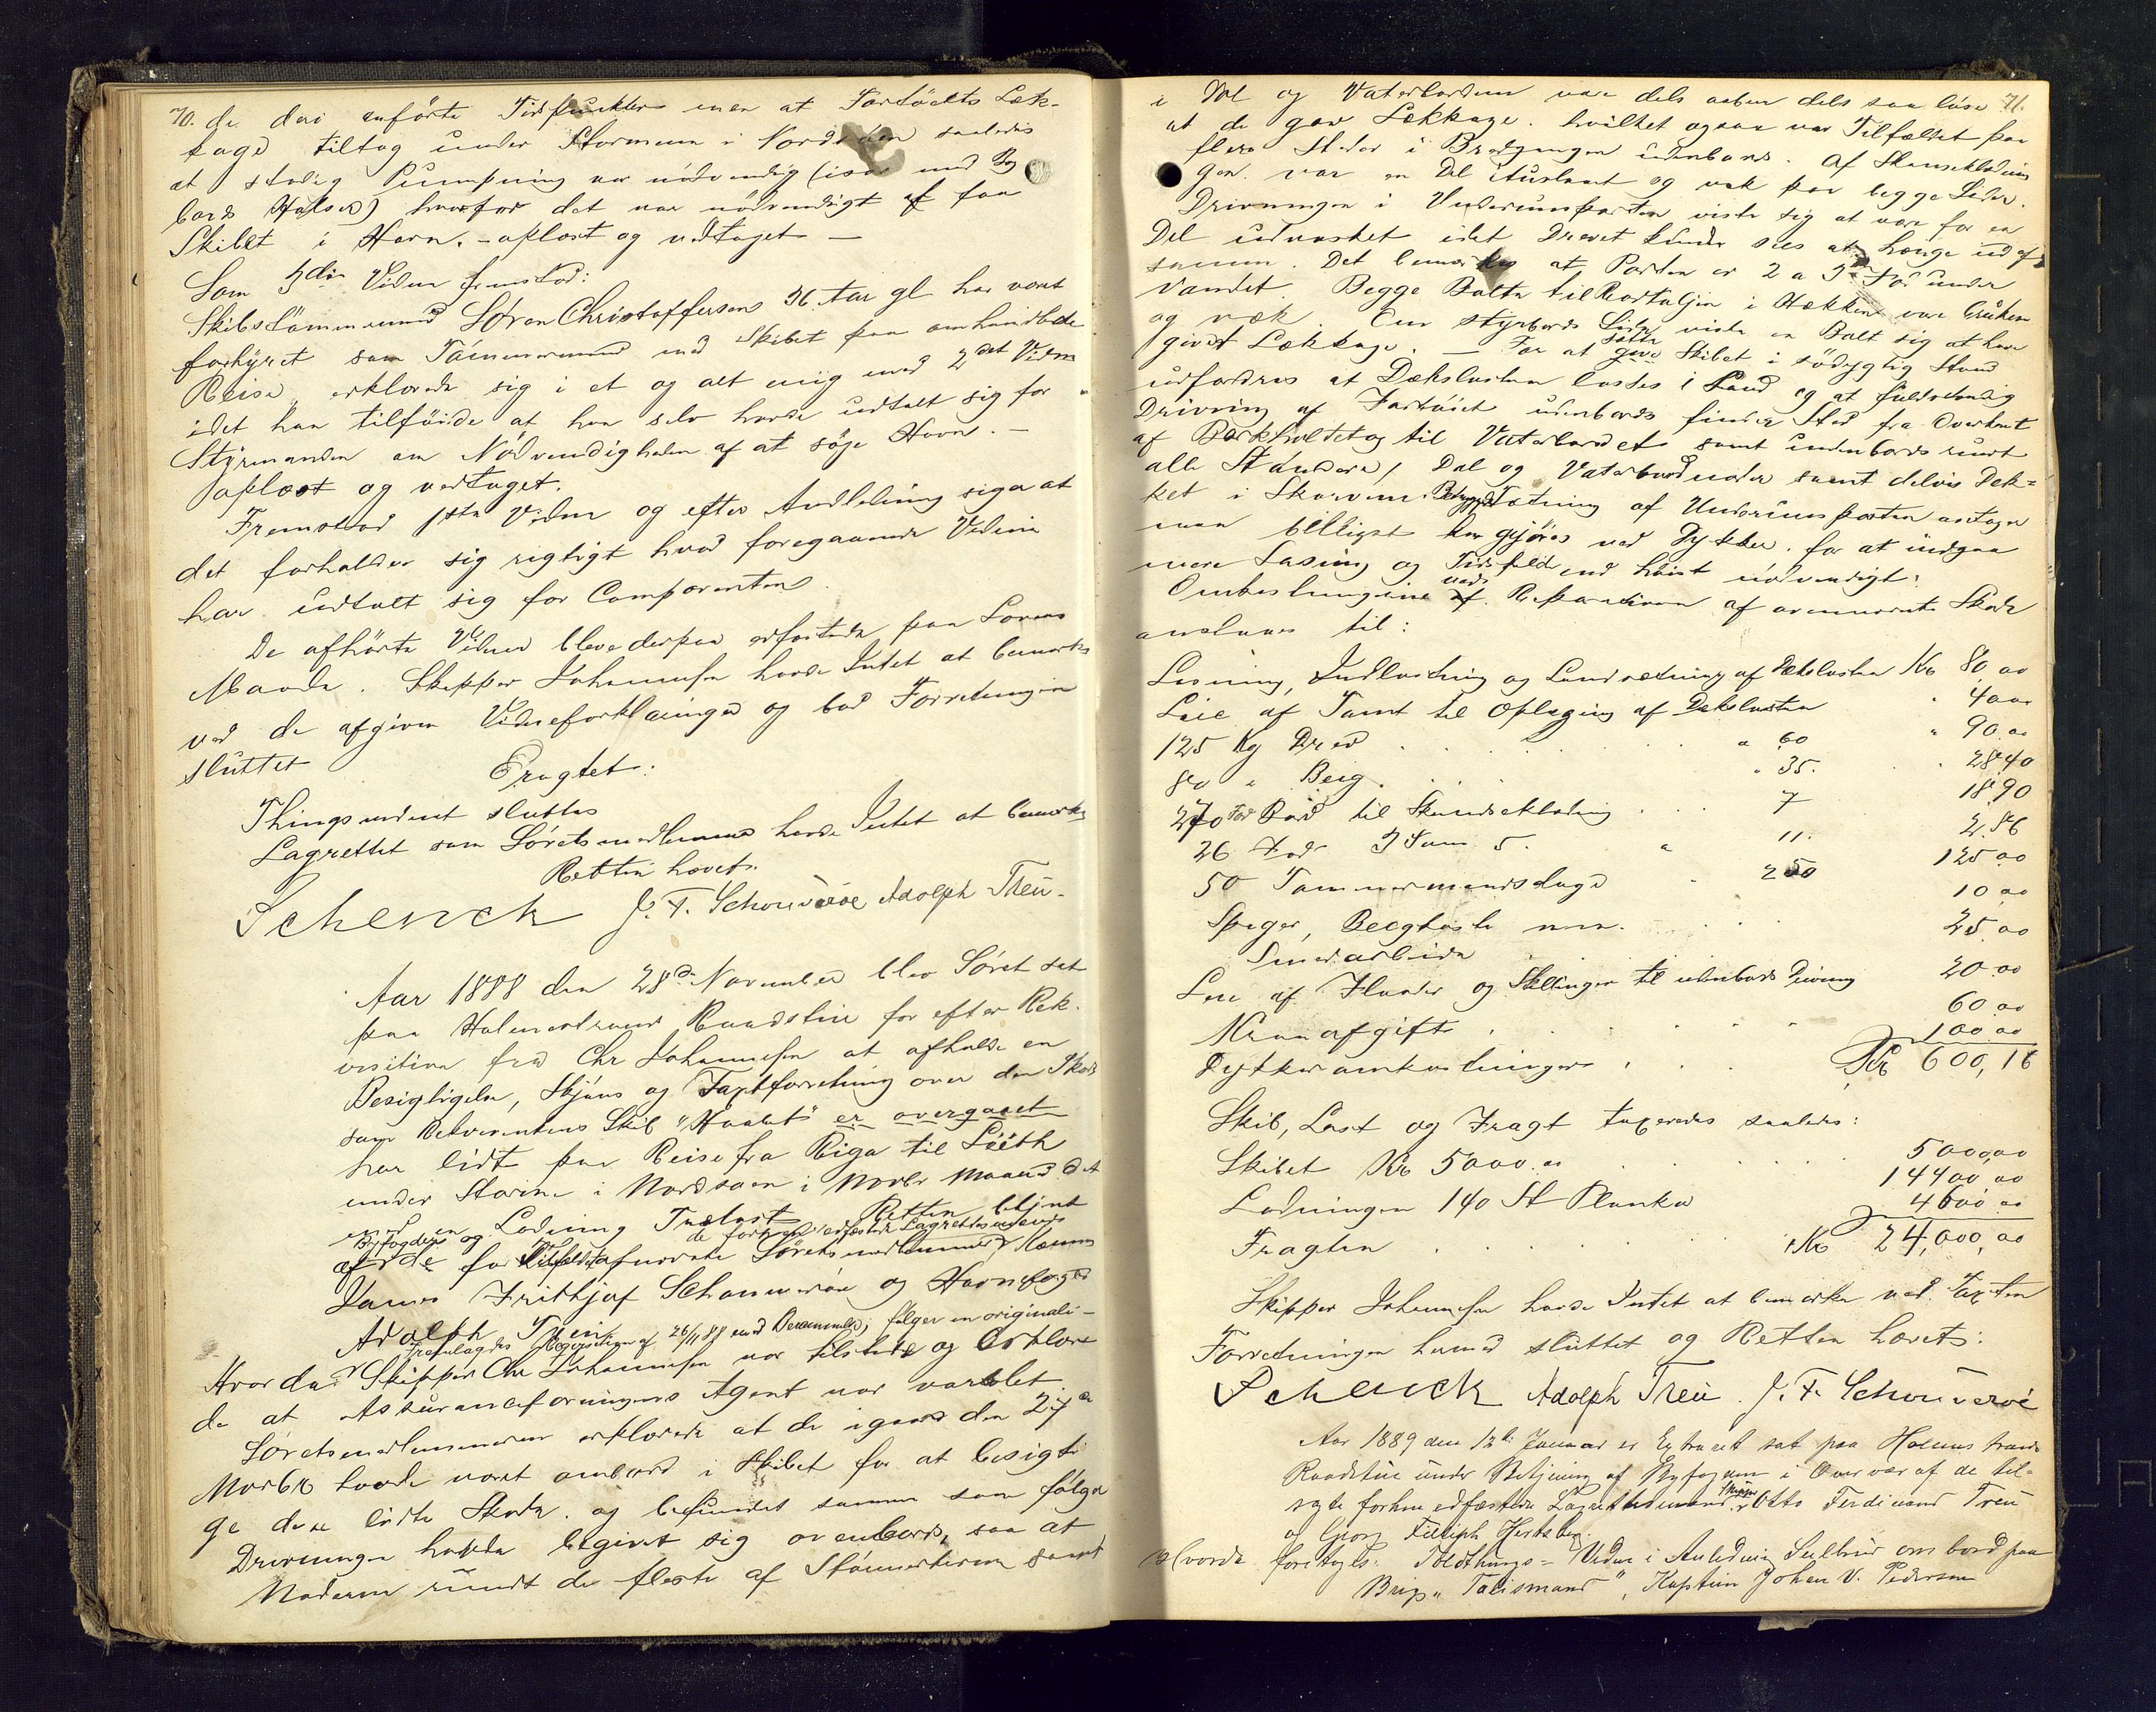 70. de deri anførte Tidspunkter men at Fartøiets Læk-
kage tiltog under Stormene i Nordsøen saaledes
at stadig Pumpning var nødvendig (især med Bag
bords Halser) hvorfor det var nødvendigt at faa
Skibet i Havn. - oplæst og vedtaget -
Som 3die Vidne fremstod:
Skibstømmermand Søren Christoffersen 36 Aar gl har været
forhyret som Tømmermand med Skibet paa omhandlede
Reise, erklærede sig i et og alt enig med 2det Vidne
idet han tilføiede at han selv havde udtalt sig for
Styrmanden om Nødvendigheden af at søge Havn. -
oplæst og vedtaget.
Fremstod 1ste Vidne og efter Anledning siger at
det forholder sig rigtigt hvad foregaaende Vidne
har udtalt sig for Comparenten.
De afhørte Vidner bleve derpaa edfæstede paa Lovens
Maade. Skipper Johannesen havde Intet at bemærke
ved de afgivne Vidneforklaringer og bad Forretningen
sluttet
Eragtet:
Thingsvidnet sluttes
Lagrettet som Søretsmedlemmer havde Intet at bemærke
Retten hævet.
Schenck J. F. Schouverøe Adolph Treu.
Aar 1888 den 28de November blev Søret sat
paa Holmestrands Raadstue for efter Rek-
visition fra Chr Johannesen at afholde en
Besigtigelse, Skjøns og Taxtforretning over den Skade
som Rekvirentens Skib "Haabet" er overgaaet
har lidt paa Reise fra Riga til Leith
under Storme i Nordsøen i Novbr Maaned d A
med en Ladning Trælast Retten betjent
af Byfogden og de forhen edfæstede Lagrettesmænd
de for Tilfældet opnævnte Søretsmedlemmer Kæmner
James Frithjof Schouverøe og Havnefoged
Adolph Treu
Fremlagdes Reqvisition af 26/11 88 med Berammelse, følger in originali -
Hvorda Skipper Chr Johannesen var tilstede og erklære
de at Assuranceforeningens Agent var varslet
Søretsmedlemmerne erklærede at de igaar den 27de
Novbr havde været ombord i Skibet for at besigti
ge den lidte Skade og befundet samme som følger
Drivningen havde begivet sig ovenbords, saa at
Naderne rundt de fleste af Støtterne samt
71.
i Dæk og Vaterbordene vare dels aaben dels saa løse
at de gav Lækkage. hvilket ogsaa var Tilfældet paa
flere Steder i Bredgangen udenbords. Af Skanseklædnin
gen var en Del itustaaet og væk paa begge Sider.
Drivningen i Underrumsporten viste sig at være for en
Del udvasket idet Drevet kunde sees at hænge ud af
samme. Det bemærkes at Porten er 2 a 3 Fod under
Vandet. Begge Bolte til Roertaljen i Hækken vare brækkene
og væk. Om styrbords Side viste en Bolt sig at have
givet Lækkage. - For at sætte Skibet i sødygtig Stand
udfordres at Dækslasten losses i Land og at fuldstændig
Drivning af Fartøiet udenbords finder Sted fra Overkant
af Barkholdet og til Vaterbordet samt indenbords rundt
alle Støndere, Dæl og Vaterbordsnader samt delvis Dæk-
ket i Skarvene. Betrygd Tætning af Underrumsporten antager
man billigst kan gjøres ved Dykker, for at undgaa
mere Losning og Tidsspilde end høist nødvendigt.
Omkostningerne ved Reparationen af ovennævnte Skade
anslaaes til:
Losning, Indlastning og Landsætning af Dækslasten Kr 80,00
Leie af Tomt til Oplægning af Dækslasten " 40,00
125 Kg Drev . . . a 60 " 90.00
80 " Beg . . . " 35. " 28.40
270 Fod Bord til Skandseklædning . . . 7 18.90
26 Fod 3 Tom 5. " 11. 2.86
50 Tømmermandsdage . 2 50 125.00
Spiger, Begkoste m.m. 10.00
Smedarbeide 25.00
Leie af Flaader og Stillinger til udenbords Drivning 20.00
Kranafgift 60.00
Dykkeromkostninger . . . 100.00
Kr 600,16
Skib, Last og Fragt taxeredes saaledes:
Skibet Kr 5000.00 . . . 5000,00
Ladningen 140 St Planker 14400,00
Fragten . . . 4600.00
Kr 24,000,00
Skipper Johannesen havde Intet at bemærke ved Taxten
Forretningen hermed sluttet og Retten hævet.
Schenck Adolph Treu. J. F. Schouverøe
Aar 1889 den 12te Januar er Extraret sat paa Holmestrands
Raadstue under Betjening af Byfogden i Overvær af de til-
sagte forhen edfæstede Lagrettesmænd Otto Ferdinand Treu
og Georg Filliph Hertzberg.
Hvorda foretoges: Søthings-Vidne i Anledning Selbrud om bord paa
Brig "Talismand", Kaptein Johan V. Pedersen